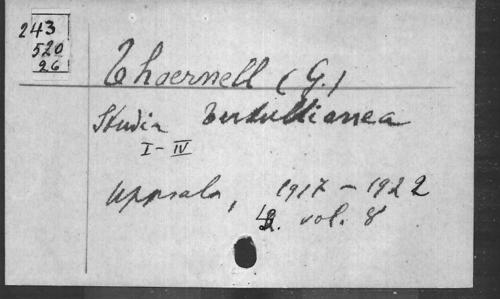 243
520
26
Thoernell (G.)
Studia Tertullianea
I-IV
Uppsala, 1917-1922
vol. 8